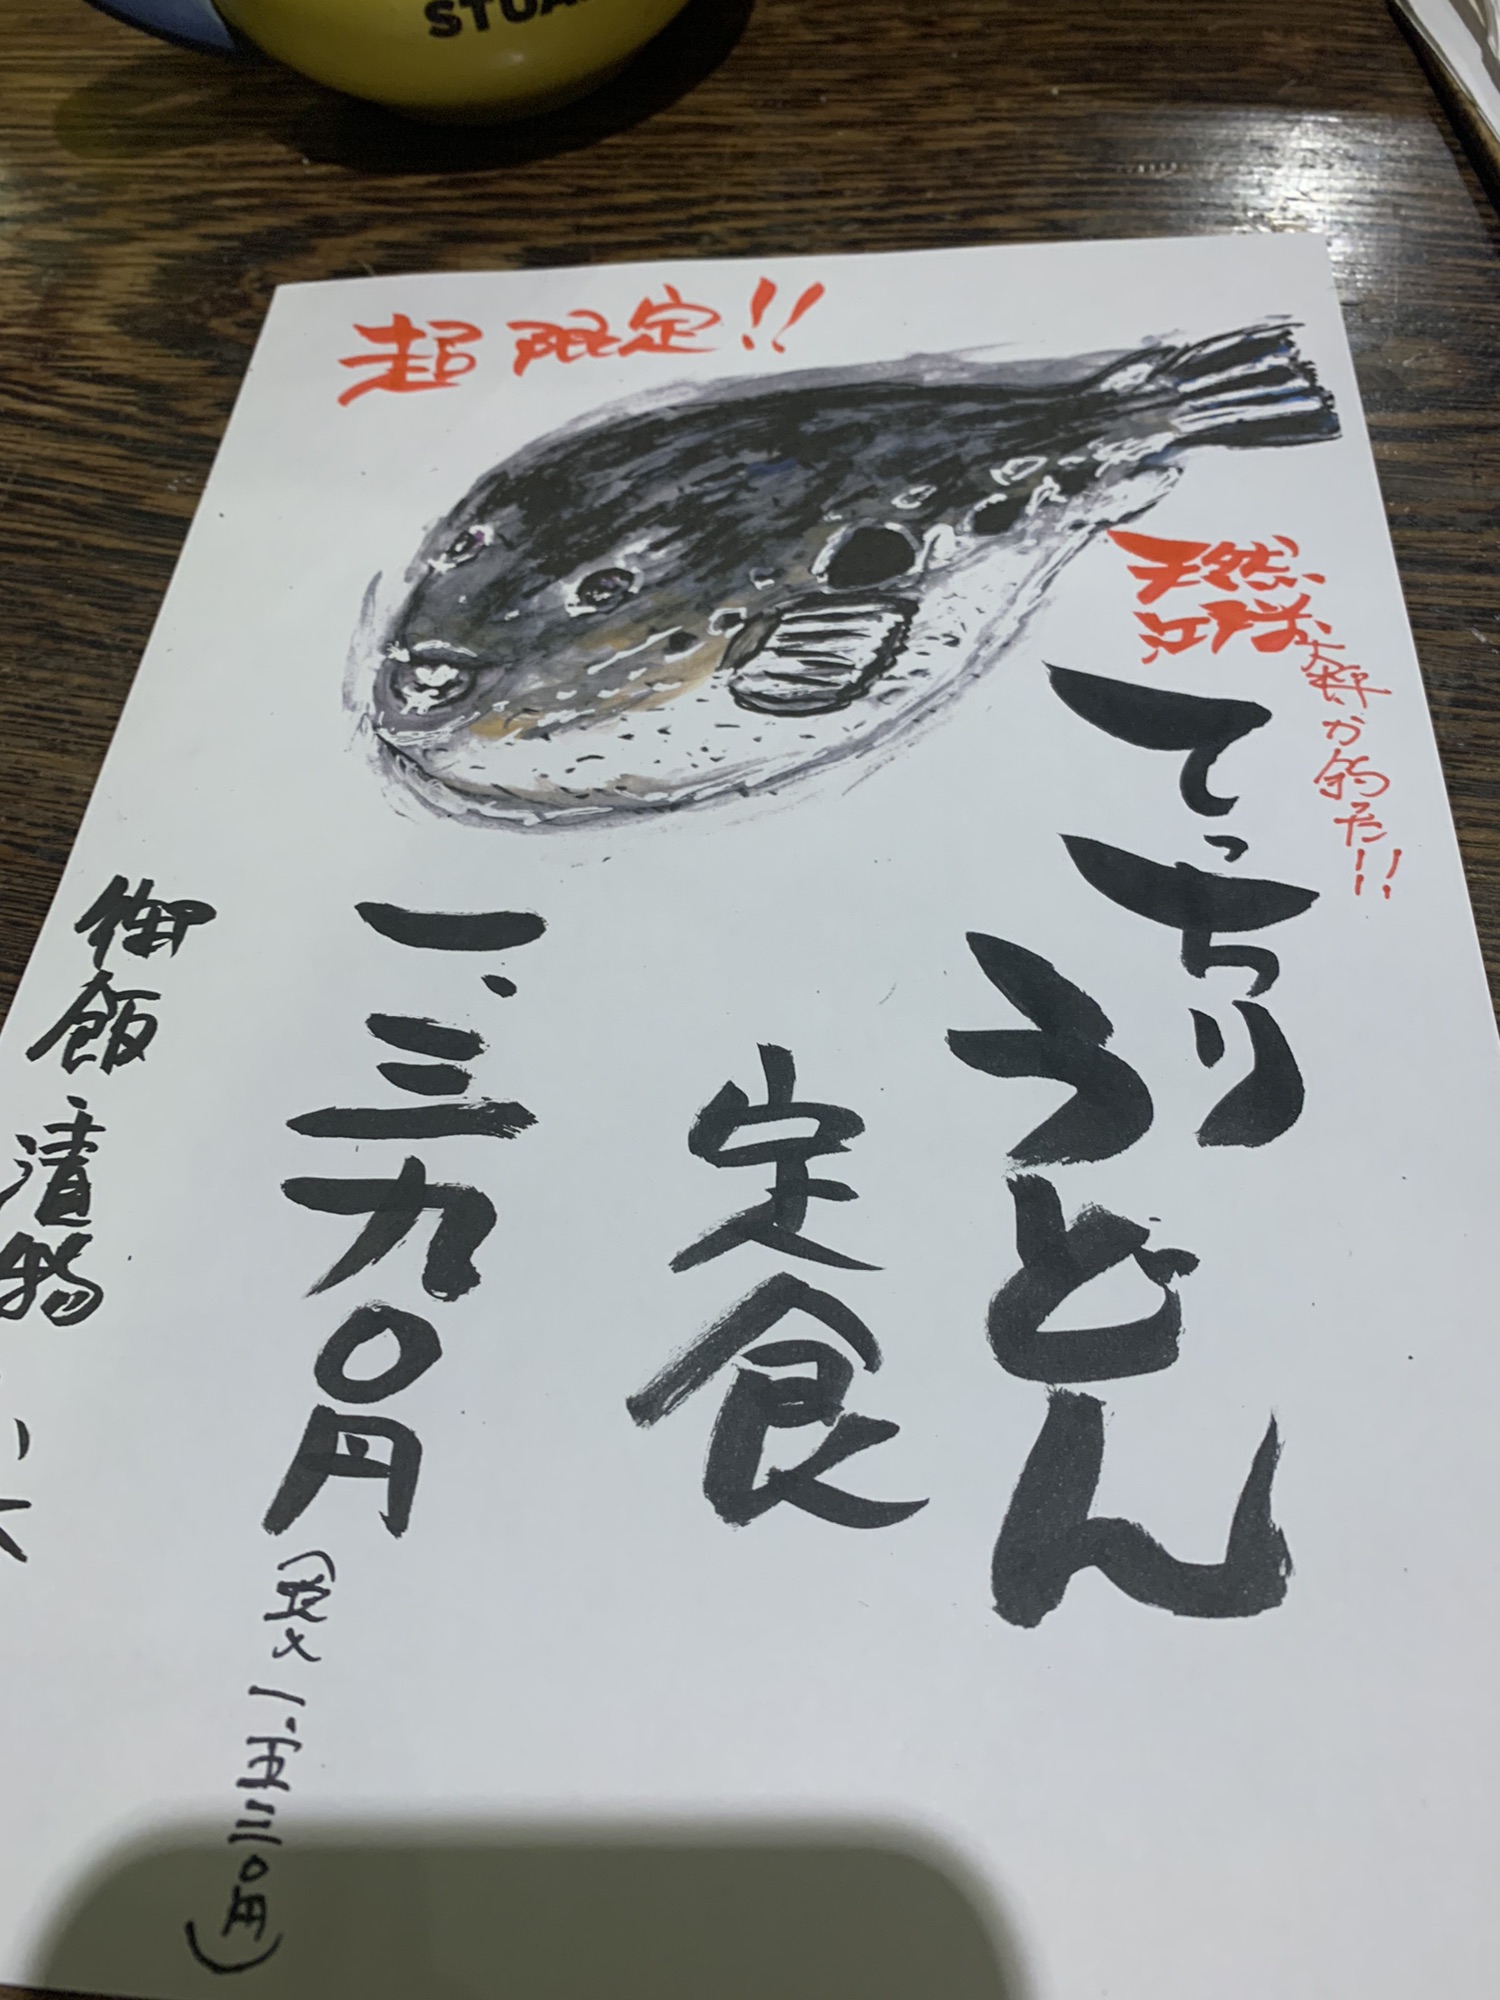 STUA
超限定!!
天然
大将が釣った!!
てっちり
うどん
定食
一、三九〇円
(税込 一、五三〇円)
御飯・漬物